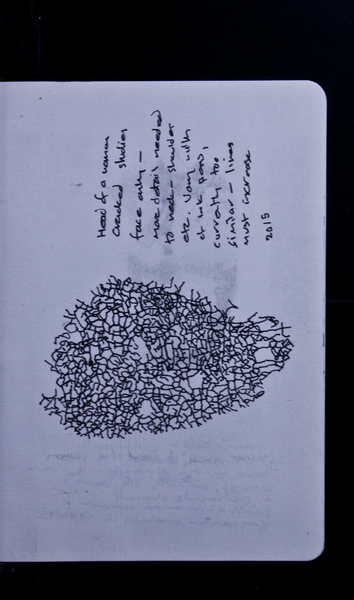 Head of a woman
cracked studies
face only –
more details needed
to neck – shoulder
etc. Vary width
of ink pens,
currently too
similar – lines
must increase
2015